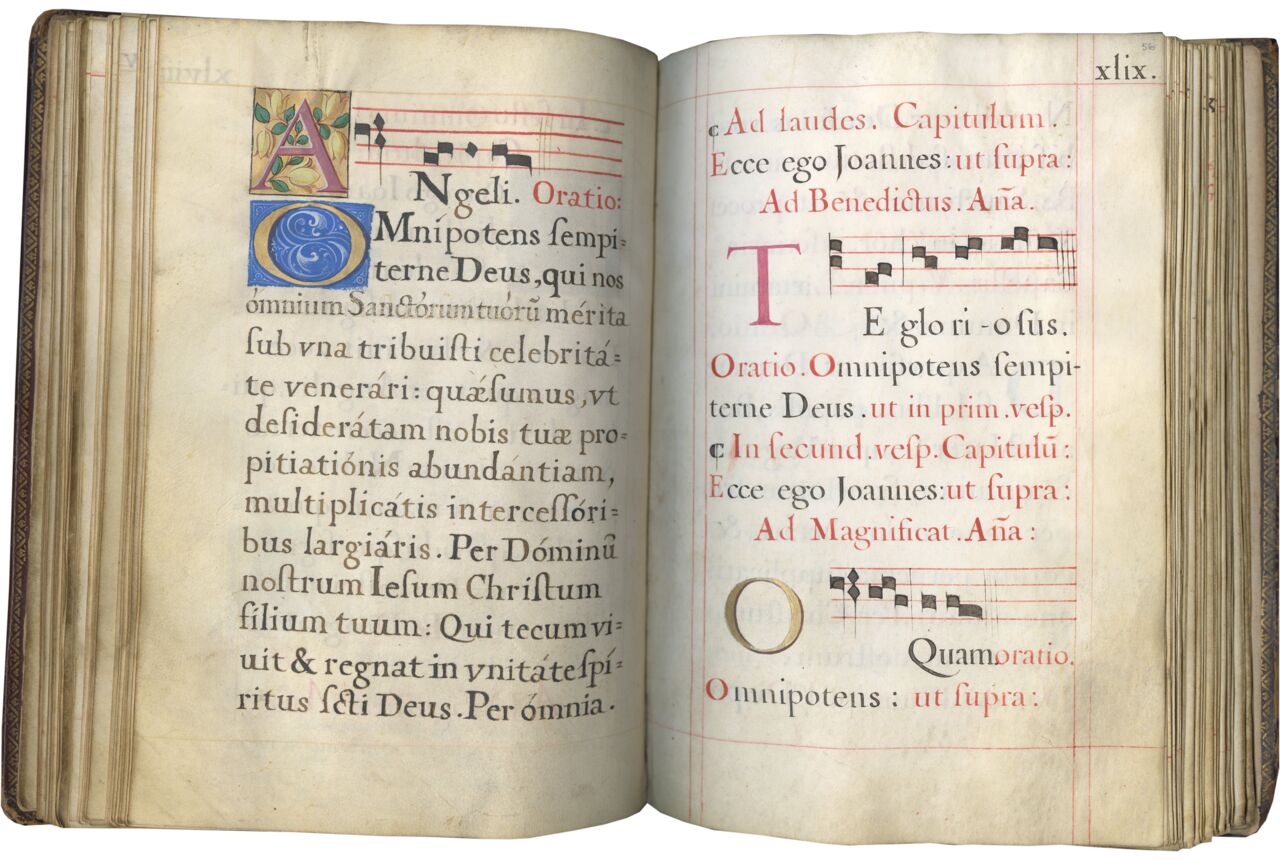 ANgeli. Oratio:
OMnipotens ſempi=
terne Deus, qui nos
ómnium Sanctórum tuórũ mérita
ſub vna tribuiſti celebritá=
te venerári: quǽſumus, vt
deſiderátam nobis tuæ pro=
pitiatiónis abundántiam,
multiplicátis interceſſóri=
bus largiáris. Per Dóminũ
noſtrum Ieſum Chriſtum
filium tuum: Qui tecum vi=
uit & regnat in vnitáte ſpí=
ritus ſcti Deus. Per ómnia.
56
xlix.
¶ Ad laudes. Capitulum.
Ecce ego Joannes: ut ſupra:
Ad Benedictus. Aña.
TE glo ri - o ſus.
Oratio. Omnipotens ſempi-
terne Deus. ut in prim. veſp.
¶ In ſecund. veſp. Capitulũ:
Ecce ego Joannes: ut ſupra:
Ad Magnificat. Aña:
O Quam. oratio.
Omnipotens: ut ſupra: